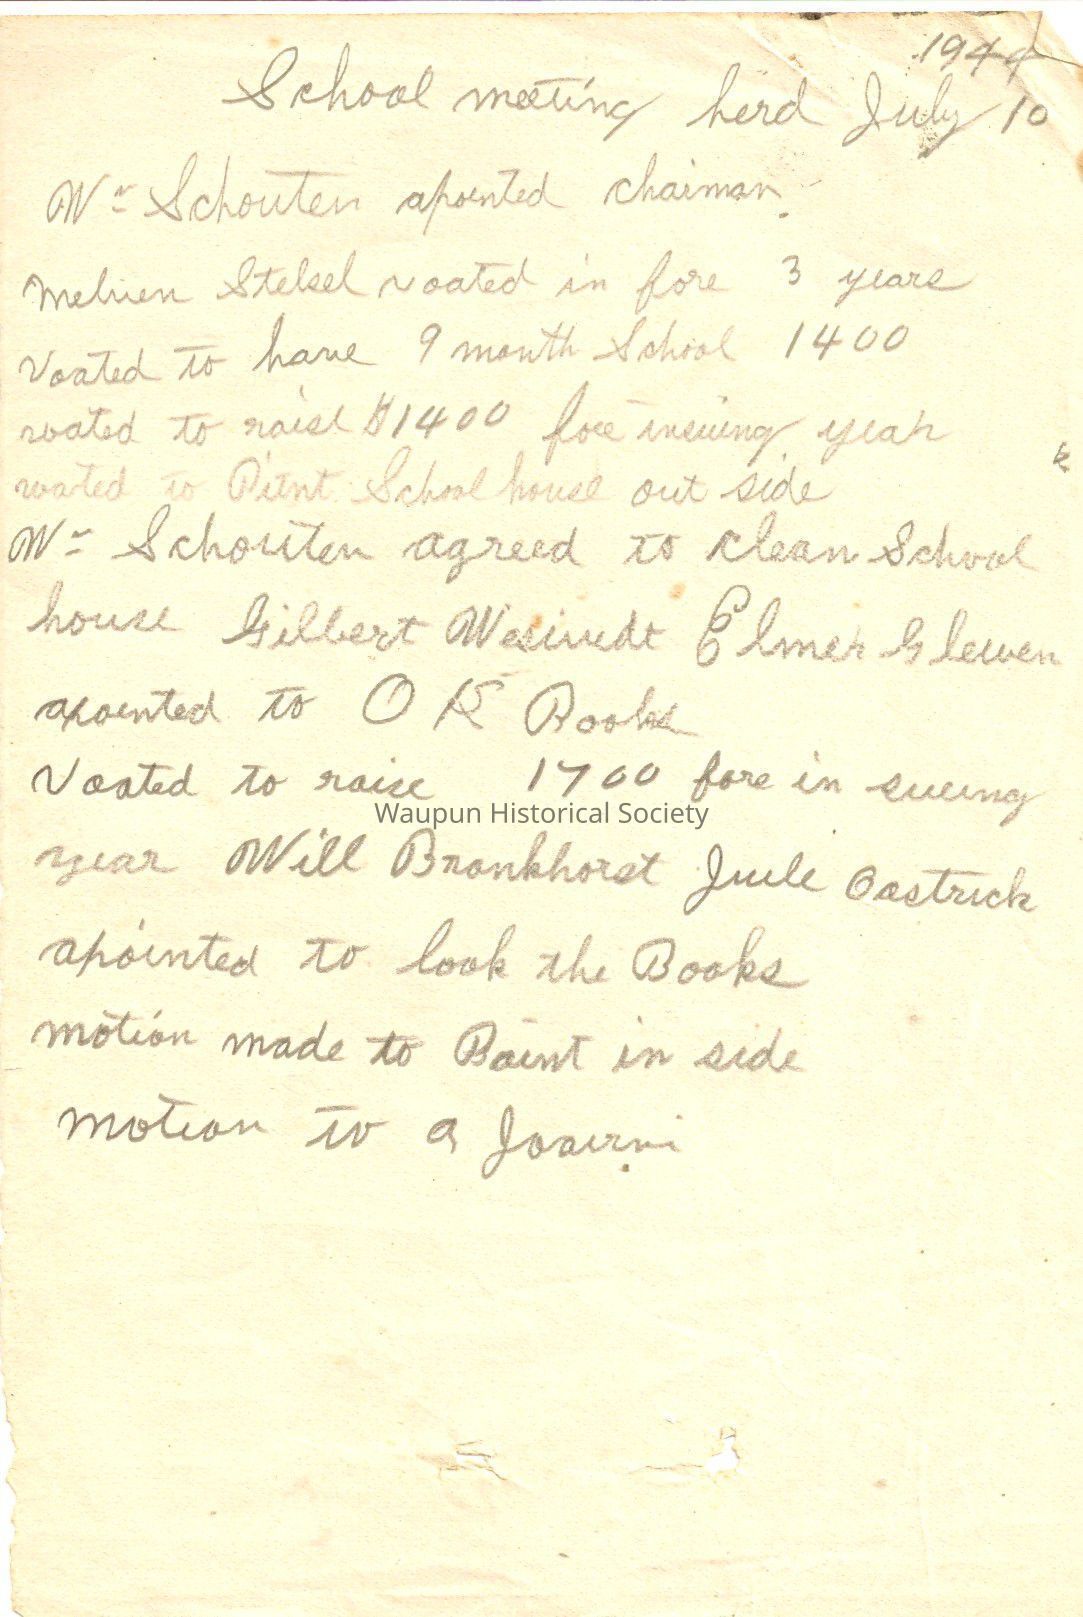 1944
School meeting herd July 10
Wm Schouten apointed chaiman
Melvien Stelsel voated in fore 3 years
Voated to have 9 month School 1400
voated to raise $1400 fore insuing year
voated to Piint School house out side
Wm Schouten agreed to clean School
house Gilbert Elmer Glewen
apointed to OK Books
Voated to raise 1700 fore in sueing
Waupun Historical Society
year Will Bronkhorst Jule Oostrick
apointed to look the Books
motion made to Paint in side
motion to a Joaurn